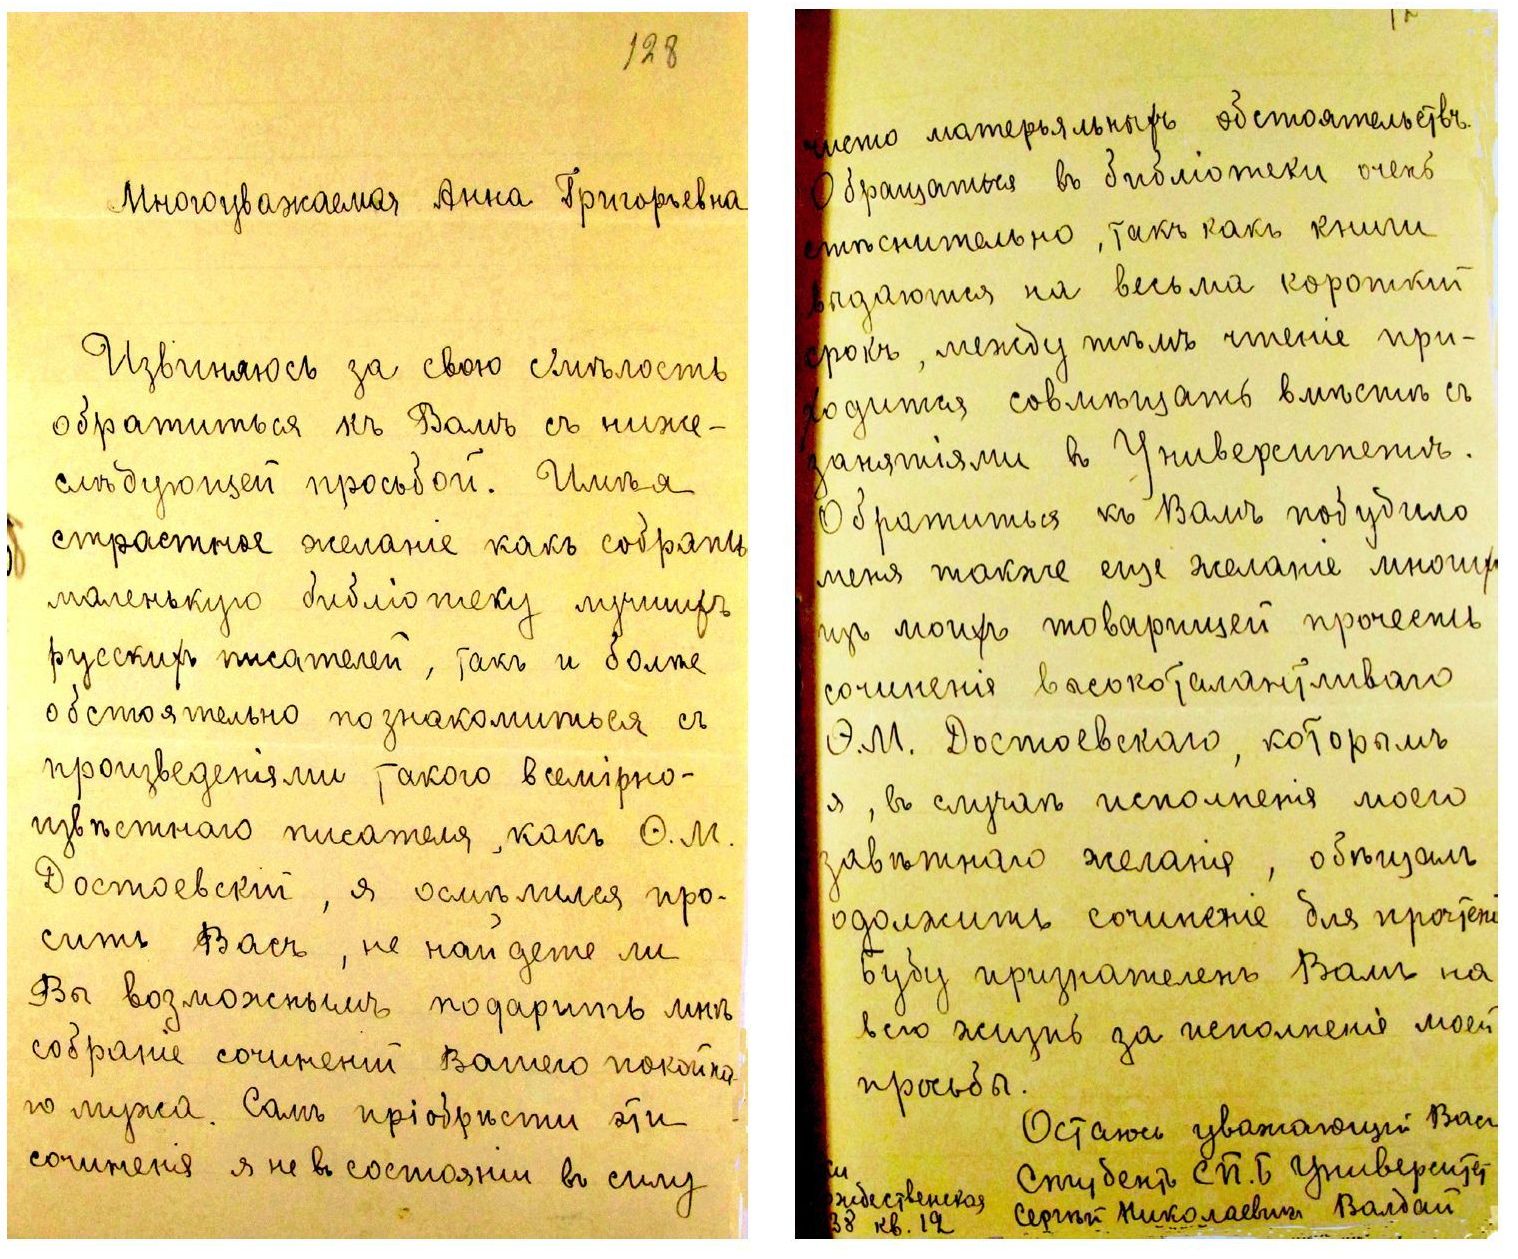 128
Многоуважаемая Анна Григорьевна
Извиняюсь за свою смѣлость
обратиться къ Вамъ съ ниже-
слѣдующей просьбой. Имѣя
страстное желаніе какъ собрать
маленькую библіотеку лучшихъ
русскихъ писателей, такъ и болѣе
обстоятельно познакомиться съ
произведеніями такого всемірно-
извѣстнаго писателя, какъ Ѳ.М.
Достоевскій, я осмѣлился про-
сить Васъ, не найдете ли
Вы возможнымъ подарить мнѣ
собраніе сочиненій Вашего покойна-
го мужа. Самъ пріобрѣсти эти
сочиненія я не въ состояніи въ силу
чисто матерьяльныхъ обстоятельствъ.
Обращаться въ библіотеки очень
стѣснительно, такъ какъ книги
выдаются на весьма короткій
срокъ, между тѣмъ чтеніе при-
ходится совмѣщать вмѣстѣ съ
занятіями въ Университетѣ.
Обратиться къ Вамъ побудило
меня также еще желаніе многих
изъ моихъ товарищей прочесть
сочиненія высокоталантливаго
Ѳ.М. Достоевскаго, которымъ
я, въ случаѣ исполненія моего
завѣтнаго желанія, обѣщалъ
одолжить сочиненіе для прочтені
Буду признателенъ Вамъ на
всю жизнь за исполненіе моей
просьбы.
Остаюсь уважающій Вас
Студентъ СП.Б Университет
Сергѣй Николаевичъ Валдай
ждественская
38 кв. 12